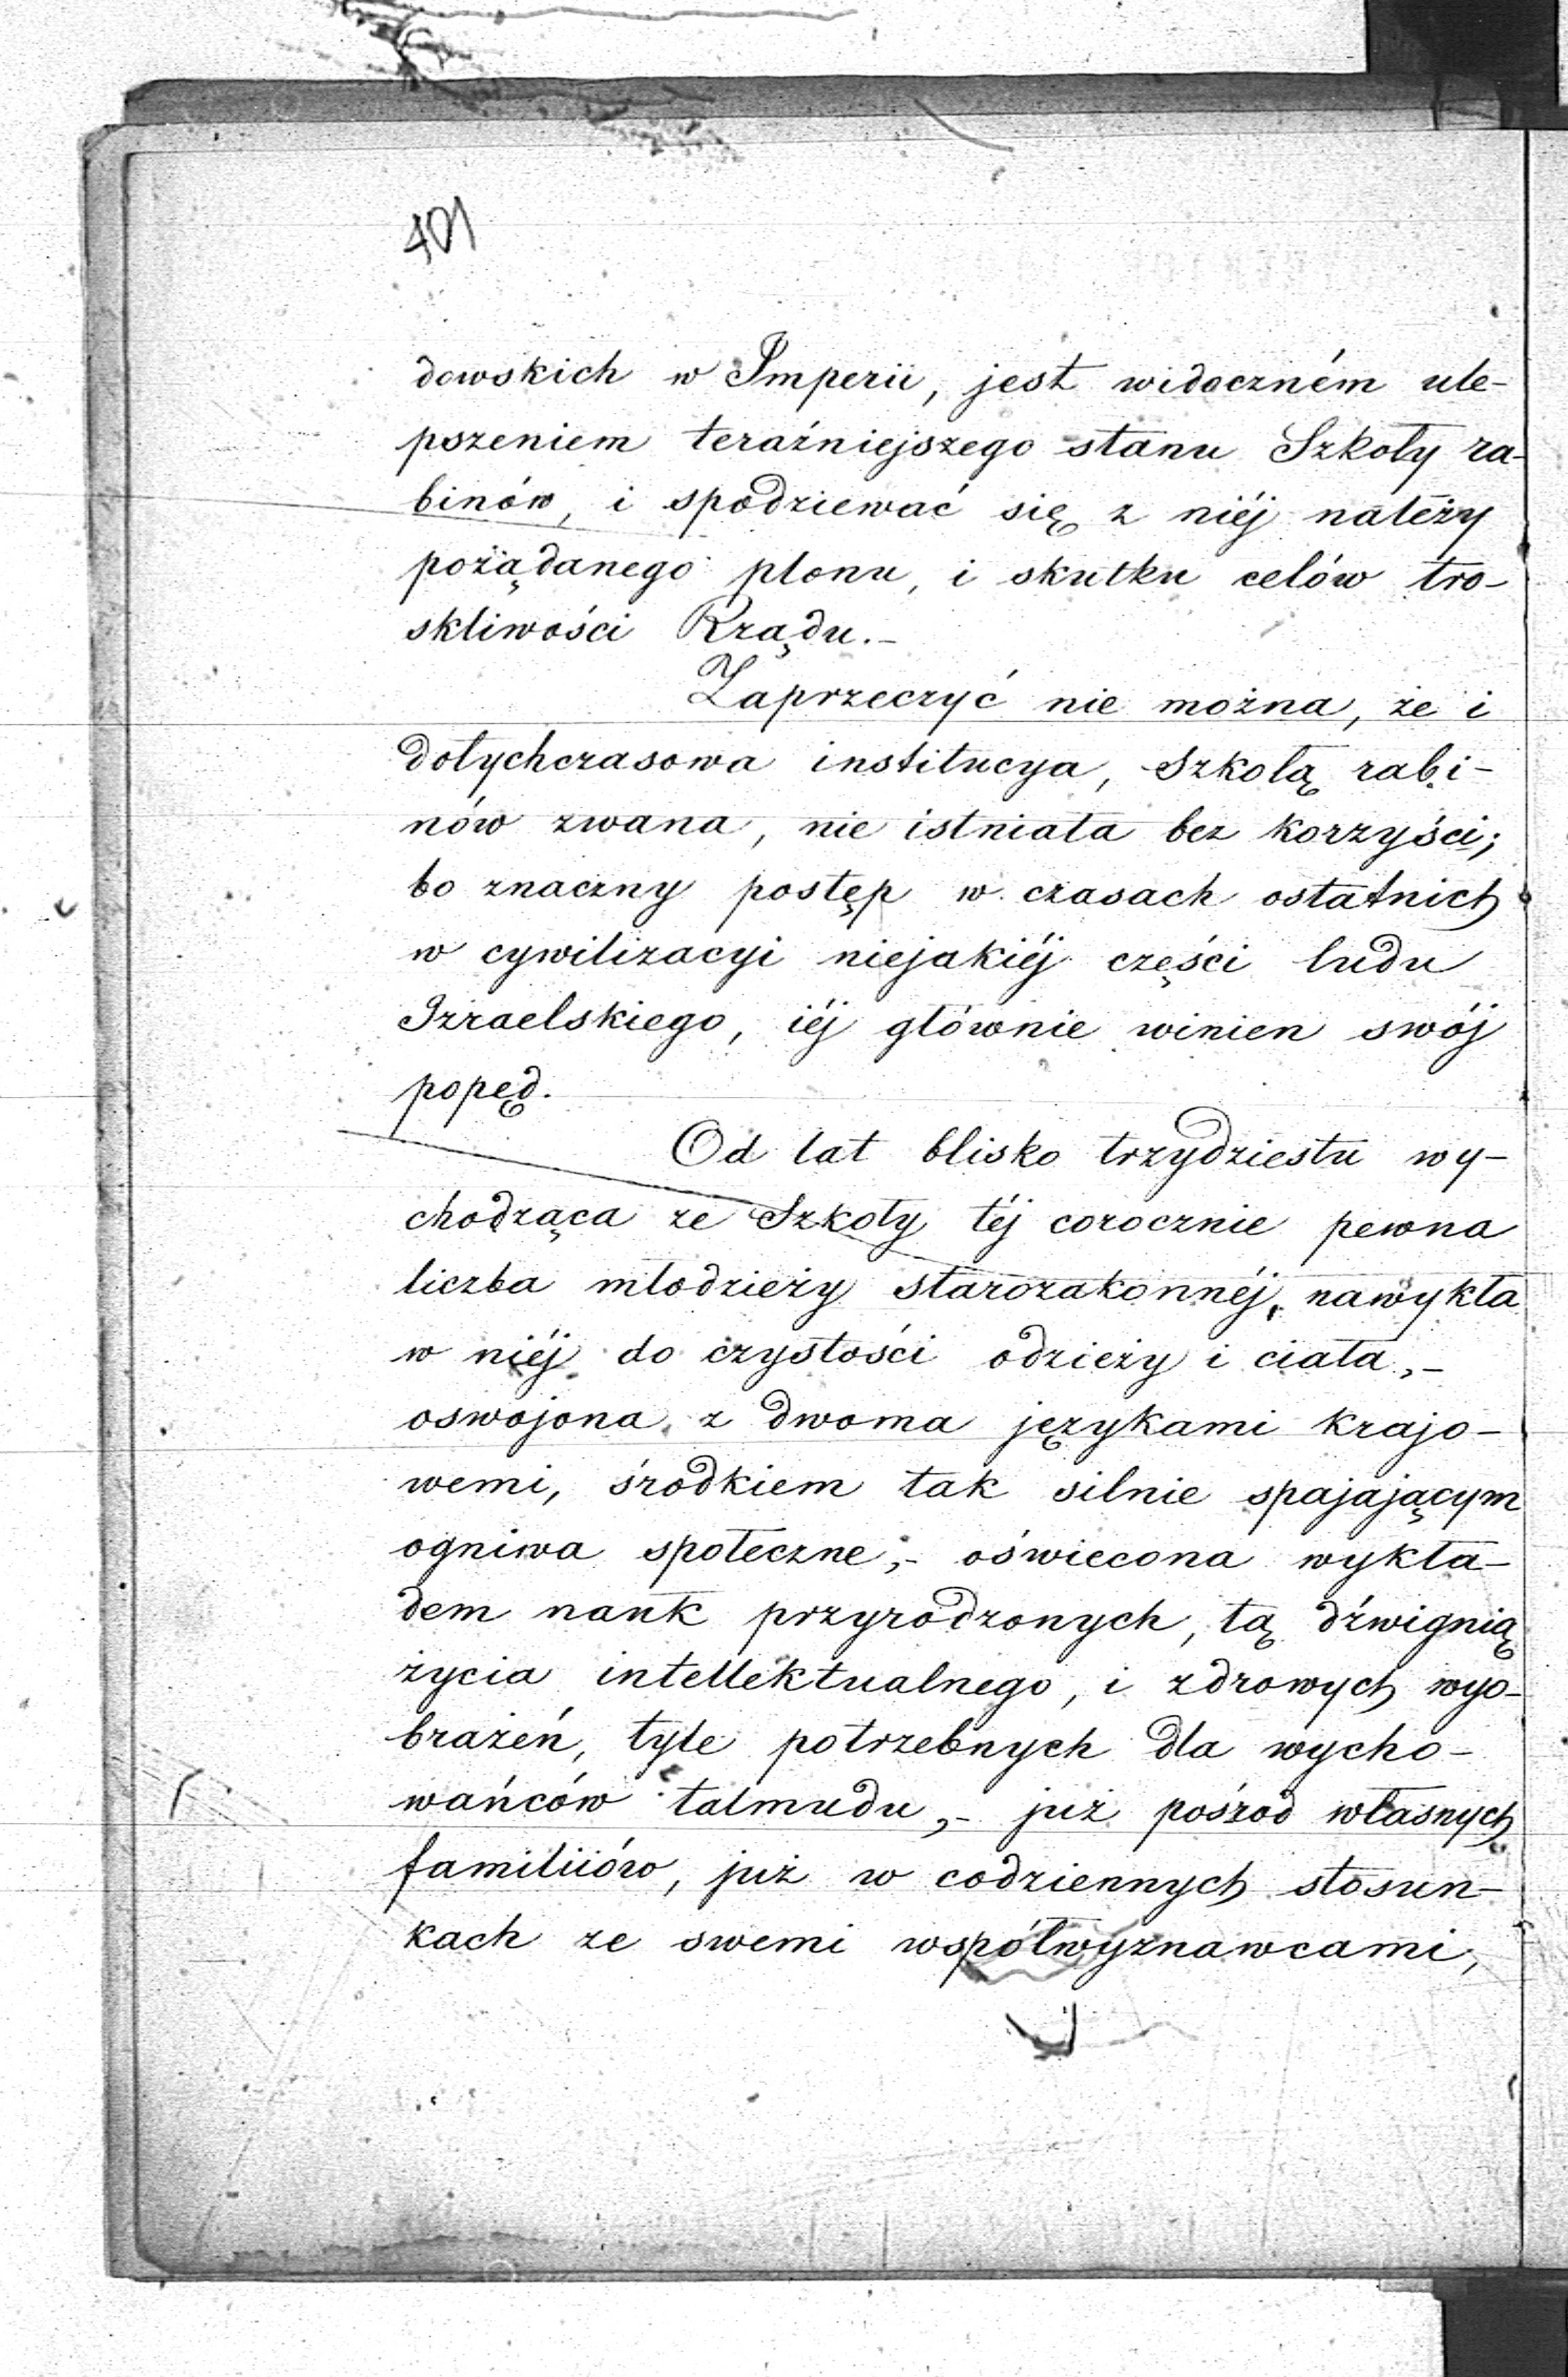 401
dowskich w Imperii, jest widoczném ule-
pszeniem teraźniejszego stanu Szkoły ra-
binów, i spodziewać się z niéj należy
pożądanego plonu, i skutku celów tro-
skliwości Rządu.-
Zaprzeczyć nie można, że i
dotychczasowa institucya, Szkołą rabi-
nów zwana, nie istniała bez korzyści;
bo znaczny postęp w czasach ostatnich
w cywilizacyi niejakiéj części ludu
Izraelskiego, iéj głównie winien swój
popęd.
Od lat blisko trzydziestu wy-
chodząca ze Szkoły téj corocznie pewna
liczba młodzieży starozakonnéj, nawykła
w niéj do czystości odzieży i ciała,-
oswojona z dwoma językami krajo-
wemi, środkiem tak silnie spajającym
ogniwa społeczne,- oświecona wykła-
dem nauk przyrodzonych, tą dźwignią
życia intellektualnego, i zdrowych wyo-
brażeń, tyle potrzebnych dla wycho-
wańców talmudu,- już pośród własnych
familiiów, już w codziennych stosun-
kach ze swemi współwyznawcami,